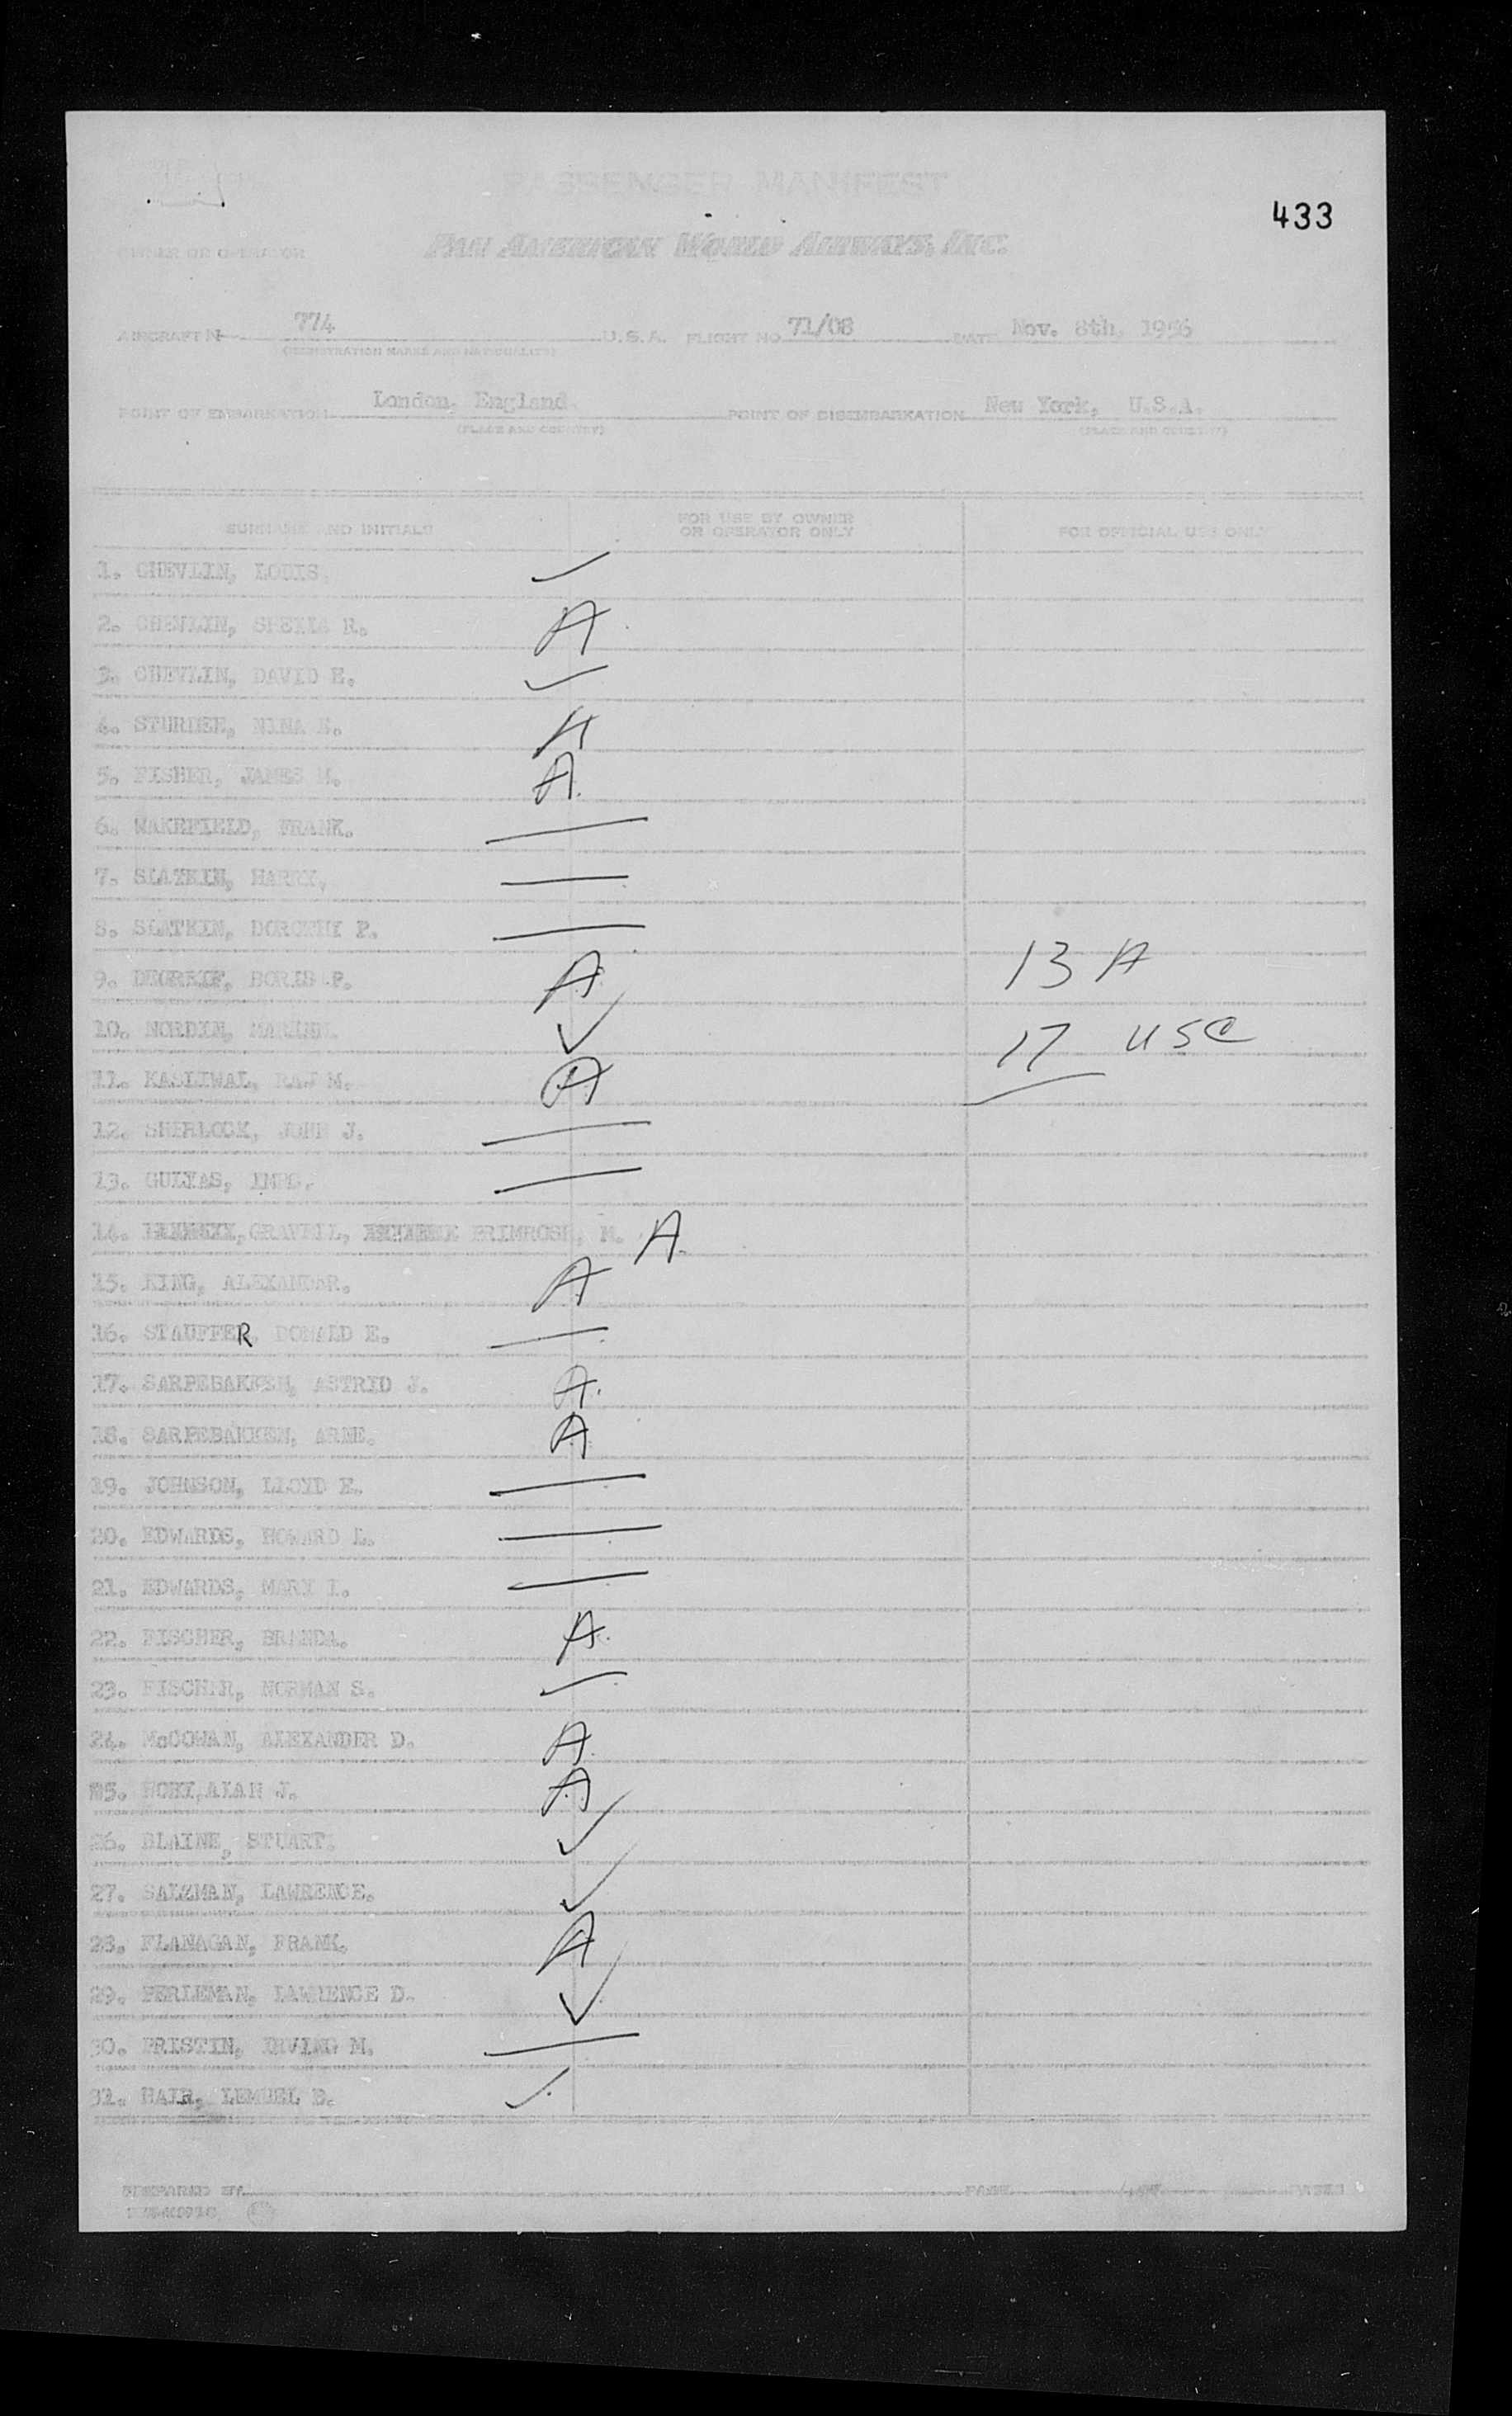 PASSENGER MANIFEST
433
OWNER OR OPERATOR PAN AMERICAN WORLD AIRWAYS, INC.
AIRCRAFT N 774 U.S.A. FLIGHT NO. 71/08 DATE Nov. 8th, 1956
(REGISTRATION MARKS AND NATIONALITY)
POINT OF EMBARKATION London, England POINT OF DISEMBARKATION New York, U.S.A.
(PLACE AND COUNTRY) (PLACE AND COUNTRY)
SURNAME AND INITIALS FOR USE BY OWNER OR OPERATOR ONLY FOR OFFICIAL USE ONLY
1. CHEVLIN, LOUIS. ✓
2. CHEVLIN, SHEILA R. A
3. CHEVLIN, DAVID E. ✓
4. STURDEE, NINA A
5. FISHER, JAMES M. A
6. WAKEFIELD, FRANK. —
7. SLATKIN, HARRY, —
8. SLATKIN, DOROTHY P. —
9. BORIS P. A 13 A
10. NORDIN, ✓ 17 USC
11. KASLIWAL, RAJ M. A
12. SHERLOCK, JOHN J. —
13. GULYAS, —
14. GRAVELL, PRIMROSE, M. A
15. KING, ALEXANDER. A
16. STAUFFER, DONALD E. —
17. SARPEBAKKEN, ASTRID J. A
18. SARPEBAKKEN, ARNE. A
19. JOHNSON, LLOYD E. —
20. EDWARDS, HOWARD L. —
21. EDWARDS, MARY I. —
22. FISCHER, BRANDA. A
23. FISCHER, NORMAN S. ✓
24. McCOWAN, ALEXANDER D. A
25. ALAN J. A
26. BLAINE, STUART. ✓
27. SALZMAN, LAWRENCE. ✓
28. FLANAGAN, FRANK. A
29. PERLEMAN, LAWRENCE D. ✓
30. PRISTIN, IRVING M. —
31. HAIR, LEMUEL B. ✓
PREPARED BY PAGE PAGES